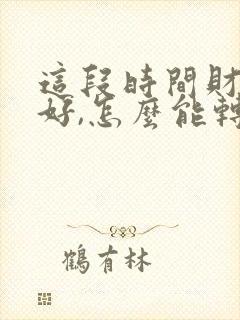 這段時間財
好,怎麼能轉
鶴有林